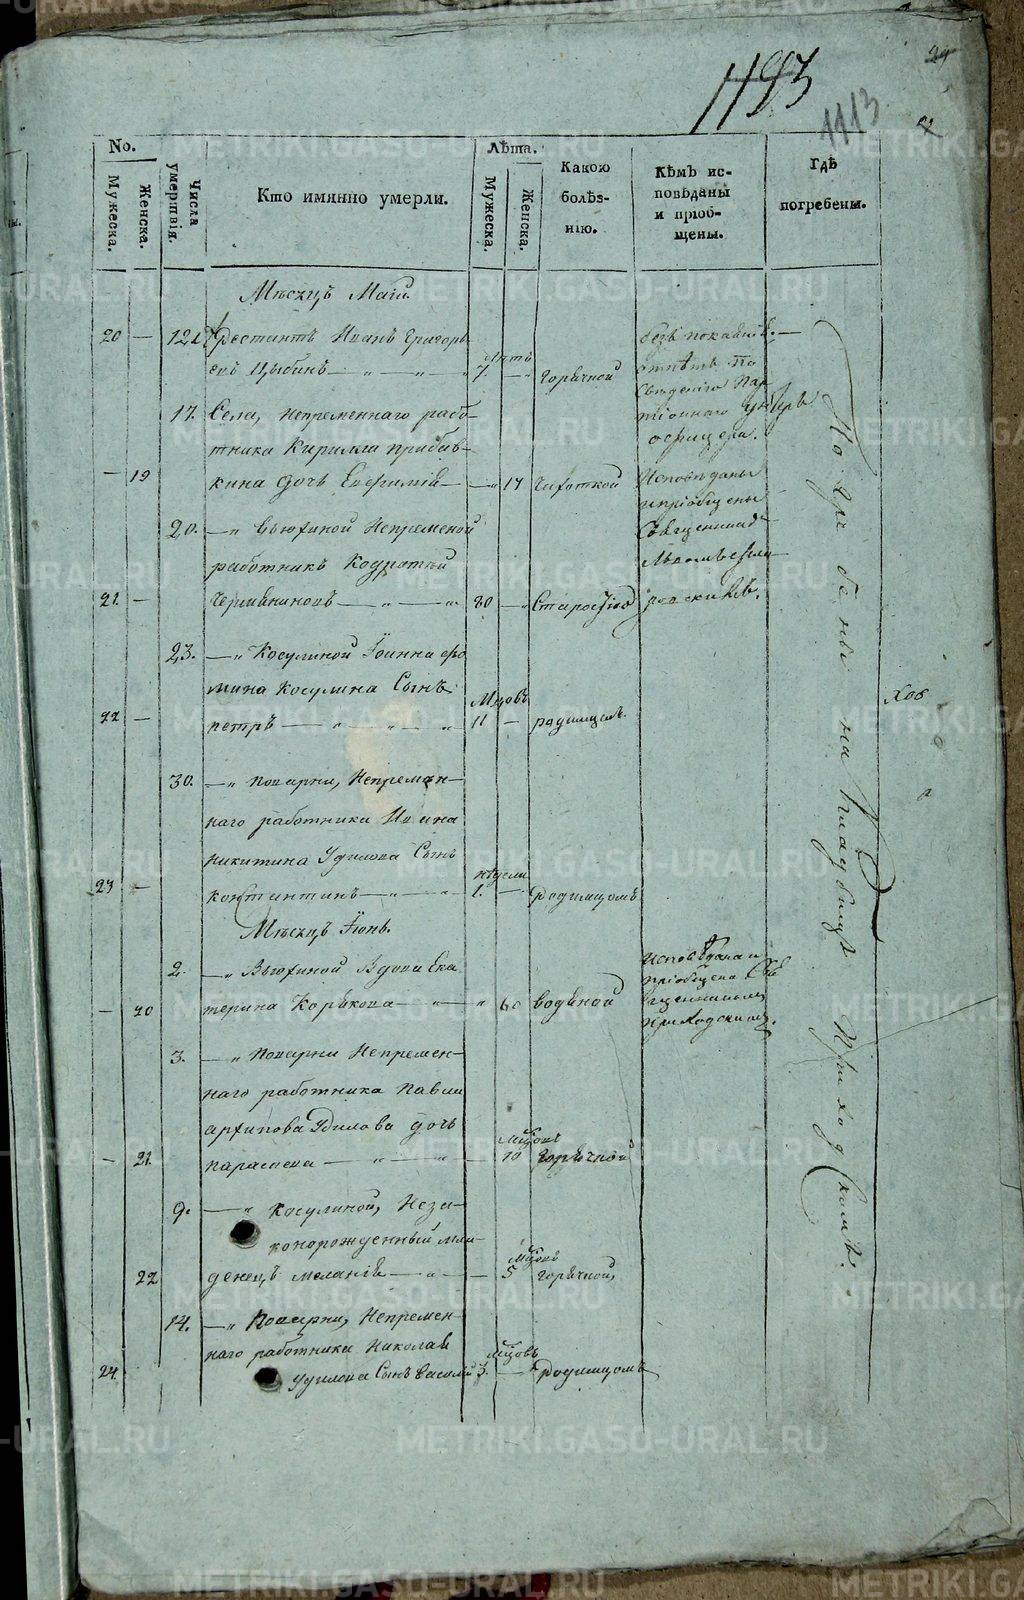 29
1493
1113
No.
Мужеска.
Женска.
Числа умертвія.
Кто имянно умерли.
Лѣта.
Мужеска.
Женска.
Какою
болѣз-
нію.
Кѣмъ ис-
повѣданы
и пріоб-
щены.
Гдѣ
погребены.
Мѣсяцъ Маій.
20 — 12. Арестантъ Иванъ Григорь-
евъ Цыбинъ — „ — „ — „ Лѣтъ 7. — „ горячкой
безъ покаянія
отпѣтъ по
Свѣденію пар-
тіоннаго унтеръ
офицера.
17. Села, Непременнаго рабо-
тника Кирилла прибав-
— 19 кина дочь Евфимія — „ 17 Чахоткой
Исповѣданы
и пріобщены
Священникомъ
20. — „ Вьюхиной Непременной
работникъ Кодратий
21. — Черемнинова — „ — „ 80 — „ Старостію
23. — „ Косулиной Іоанна Фо
мина Косулина Сынъ
22 — петръ — „ — „ — „ Мцовъ 11 — родимцомъ.
30. — „ поварни, Непремен-
наго работника Ивана
никитина Удилова Сынъ
23 — константинъ — „ — „ недели 1. — родимцомъ
Мѣсяцъ Іюнь.
2. — „ Вьюхиной Вдова Ека
— 20 терина Корякова — „ — „ 60 водяной
Исповѣдана и
пріобщена Свя
щенникомъ
приходскимъ.
3. — „ поварни Непремен-
наго работника Павла
архипова Удилова дочь
— 21. парасковья — „ — „ — Мцовъ 10 горячкой
9. — „ Косулиной, Неза-
конорожденный мла-
22 денецъ меланія — „ — Мцовъ 5 горячкой,
14. — „ Поварни, Непремен-
наго работника Николая
24. Удилова Сынъ Василий Мцовъ 3. — „ родимцомъ
Погребены на Кладбищѣ Приходскомъ.
METRIKI.GASO-URAL.RU